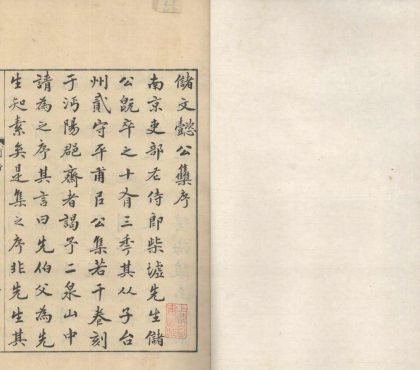 儲文懿公集序
南京吏部左侍郎柴墟先生儲
公既卒之十有三秊其从子台
州貳守平甫㠯公集若干卷刻
于沔陽郡齋者謁予二泉山中
請為之序其言曰先伯父為先
生知素矣是集之序非先生其